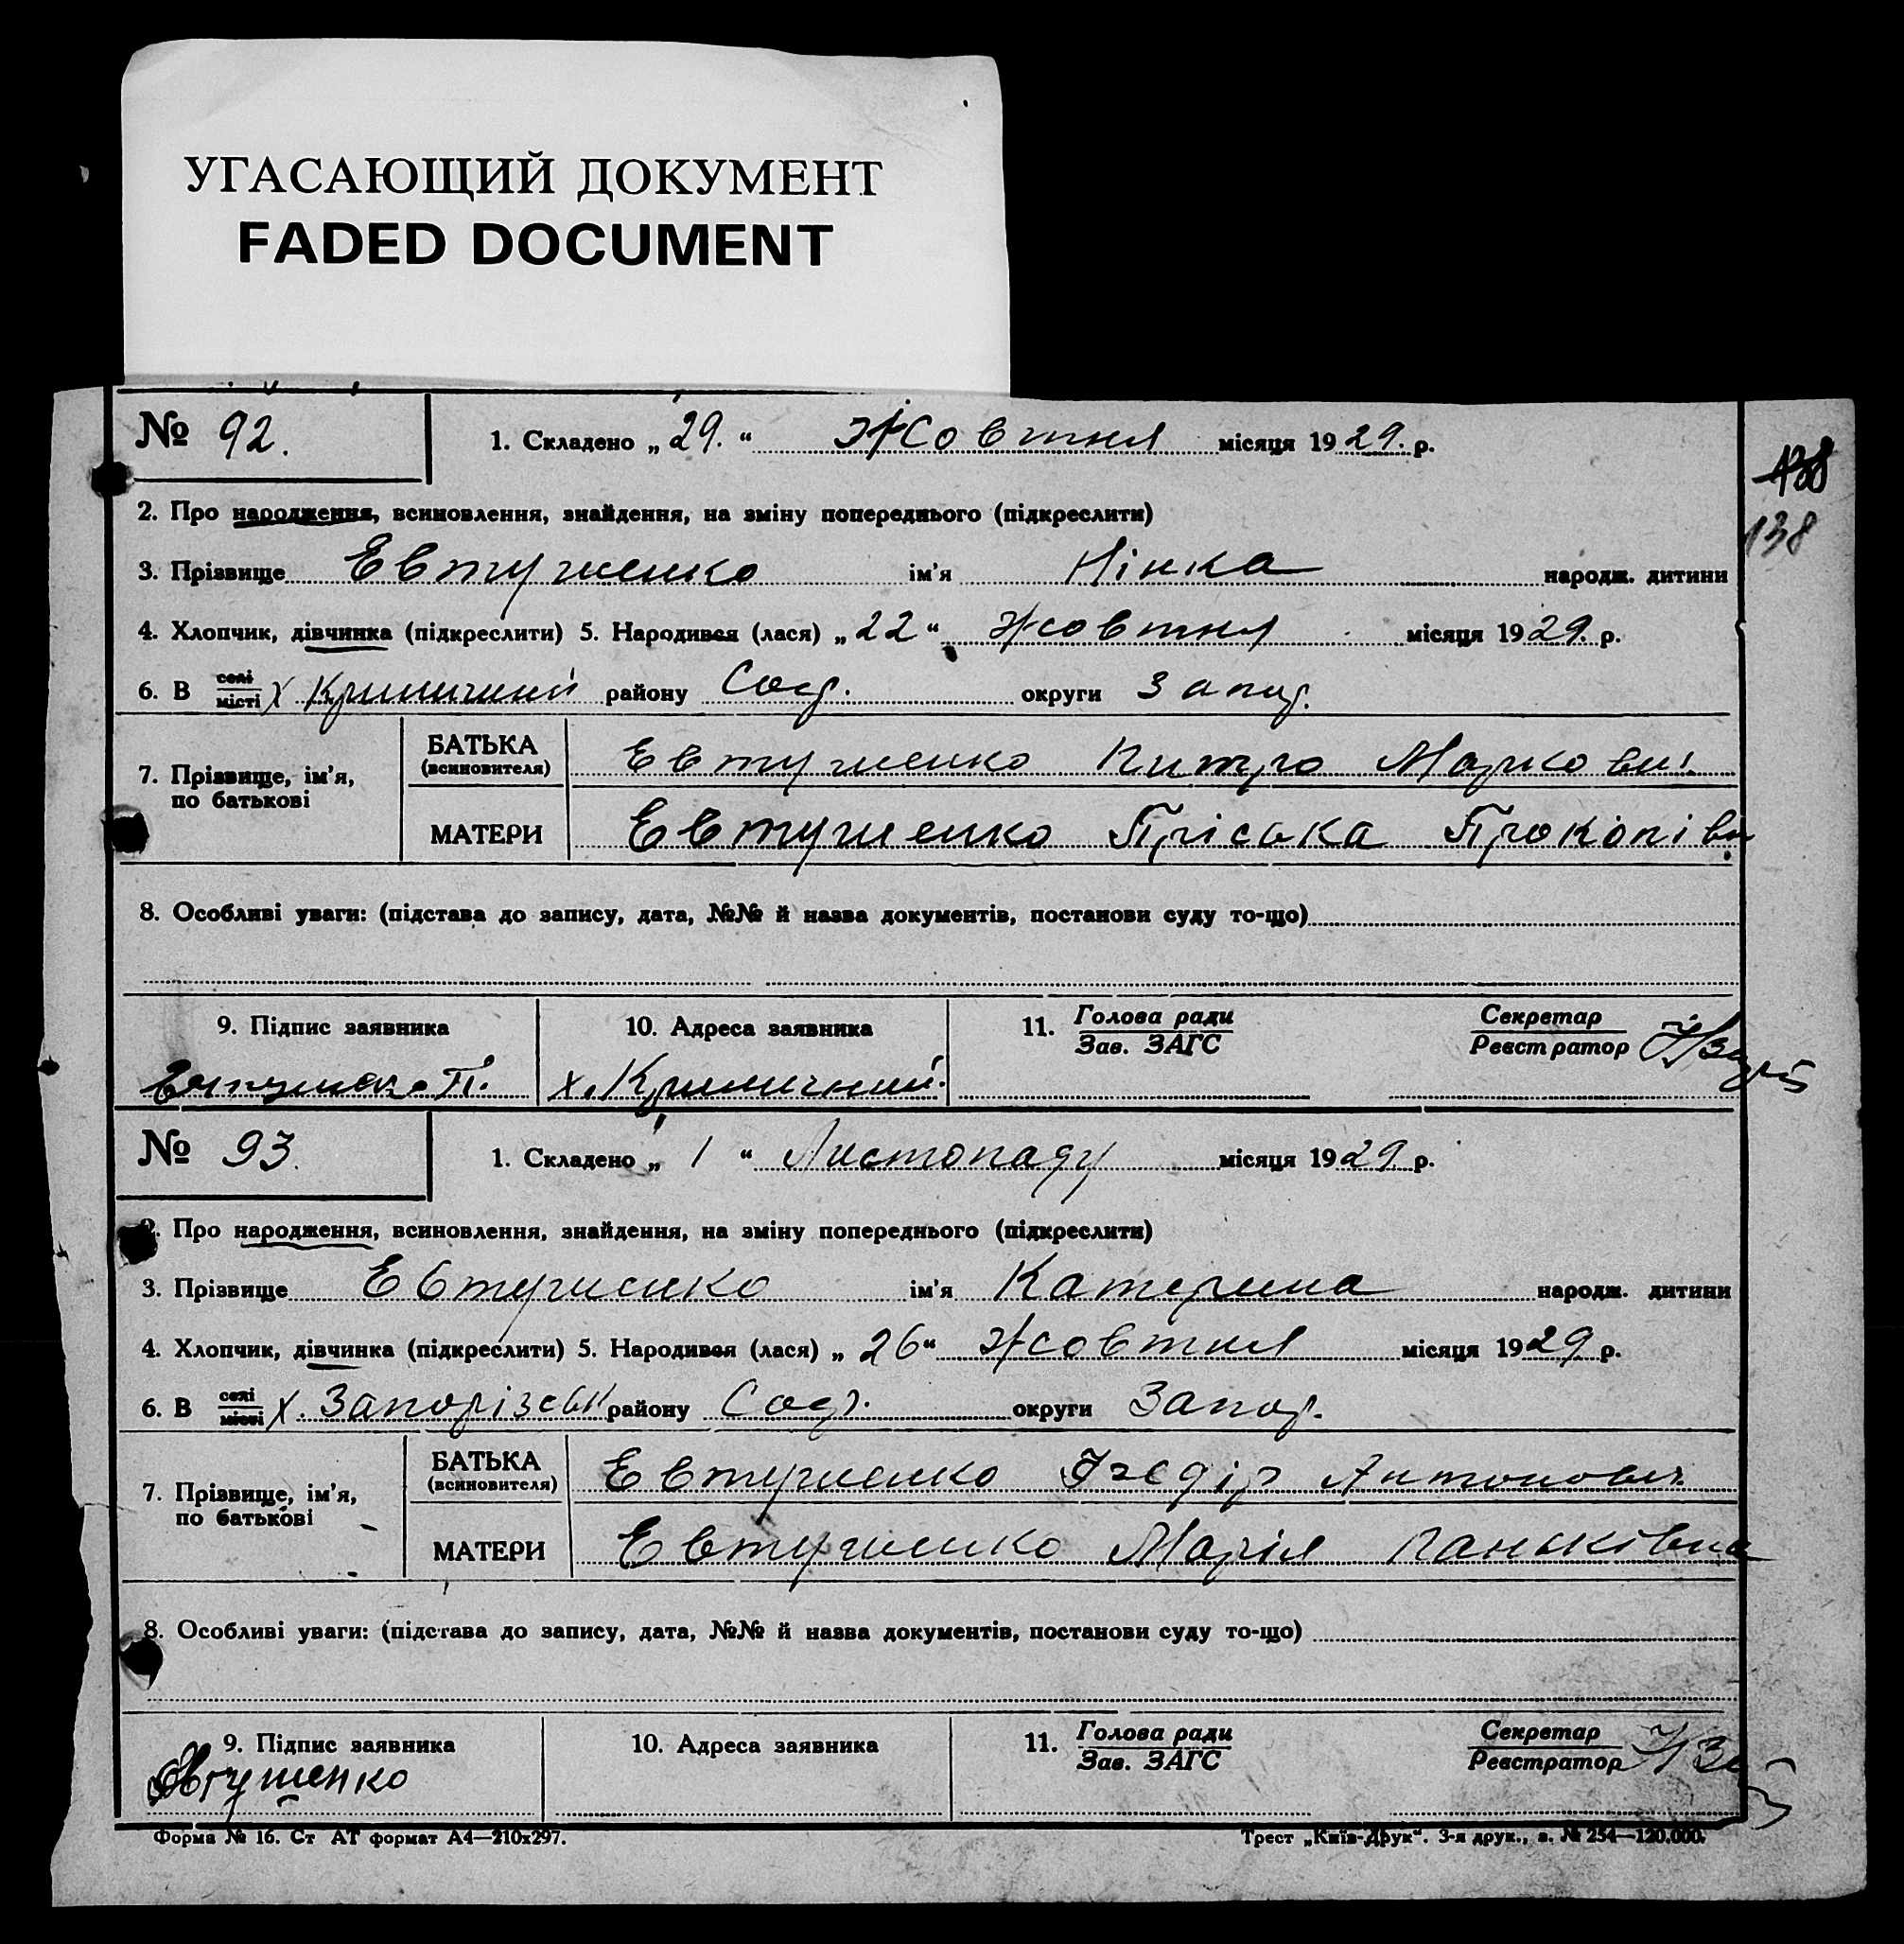 УГАСАЮЩИЙ ДОКУМЕНТ
FADED DOCUMENT
№ 92. 1. Складено „ 29. “ Жовтня місяця 1929. р.
138
2. Про народження, всиновлення, знайдення, на зміну попереднього (підкреслити)
138
3. Прізвище Евтушенко ім'я Нінка народж. дитини
4. Хлопчик, дівчинка (підкреслити) 5. Народився (лася) „ 22 “ Жовтня місяця 1929. р.
6. В селі/місті х Криничний району Соф. округи Запор.
7. Прізвище, ім'я, по батькові
БАТЬКА (всиновителя) Евтушенко Митро Маркович
МАТЕРИ Евтушенко Пріська Прокопівн
8. Особливі уваги: (підстава до запису, дата, №№ й назва документів, постанови суду то-що)
9. Підпис заявника 10. Адреса заявника 11. Голова ради/Зав. ЗАГС Секретар/Реєстратор
П. х. Криничний.
№ 93. 1. Складено „ 1 “ Листопаду місяця 1929. р.
2. Про народження, всиновлення, знайдення, на зміну попереднього (підкреслити)
3. Прізвище Евтушенко ім'я Катерина народж. дитини
4. Хлопчик, дівчинка (підкреслити) 5. Народився (лася) „ 26 “ Жовтня місяця 1929 р.
6. В селі/місті х. Запорізськ району Соф. округи Запор.
7. Прізвище, ім'я, по батькові
БАТЬКА (всиновителя) Евтушенко Антонович
МАТЕРИ Евтушенко Марія Паньківна
8. Особливі уваги: (підстава до запису, дата, №№ й назва документів, постанови суду то-що)
9. Підпис заявника 10. Адреса заявника 11. Голова ради/Зав. ЗАГС Секретар/Реєстратор
Форма № 16. Ст АТ формат А4—210х297. Трест „Київ-Друк“. 3-я друк., з. № 254—120.000.